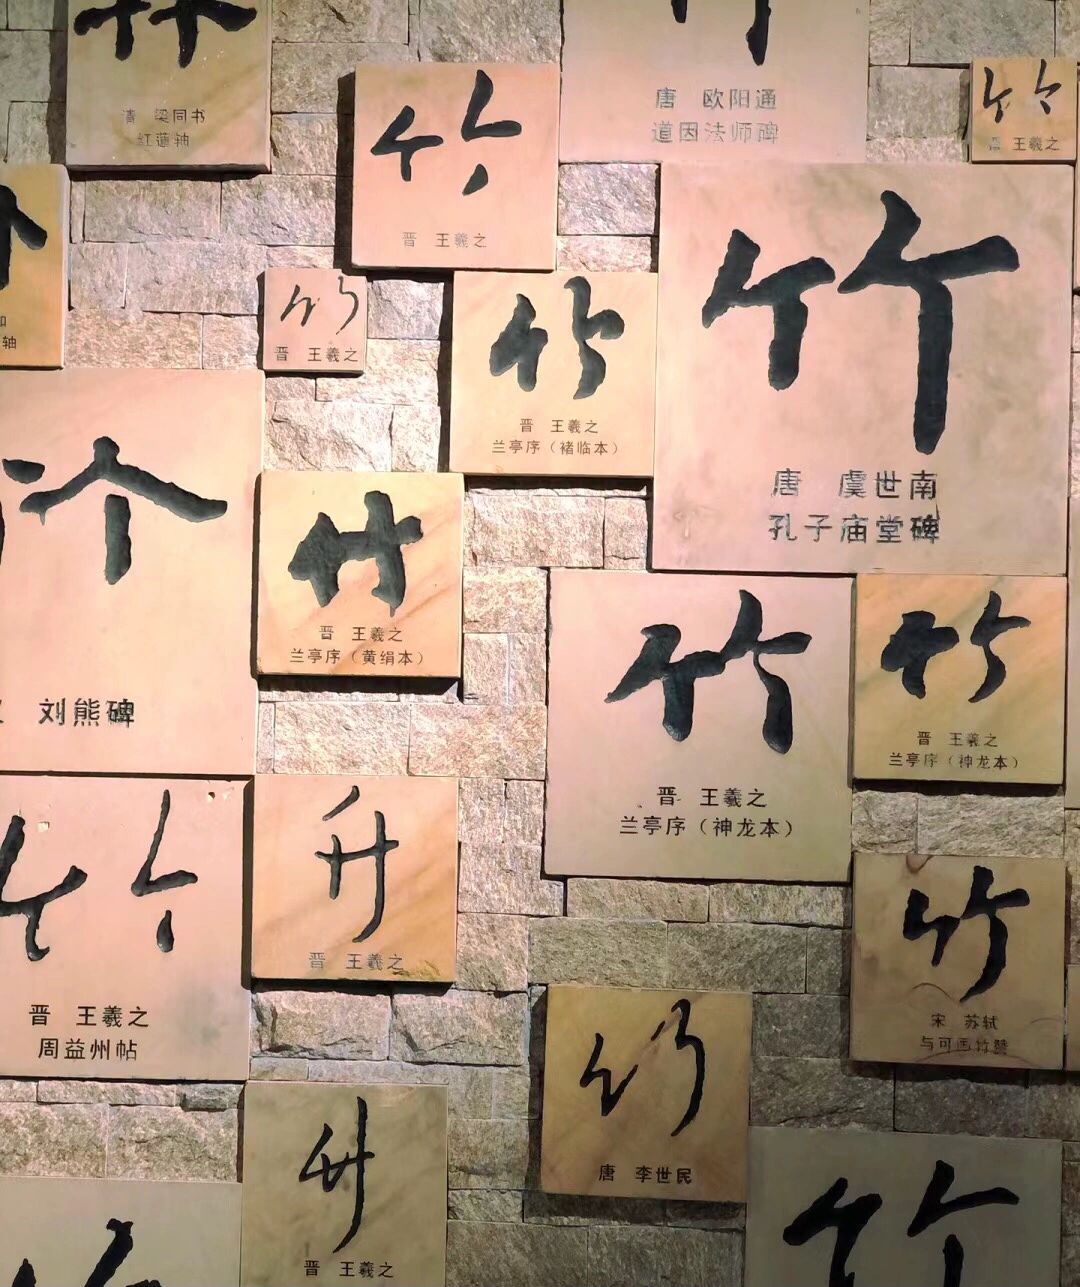 清 梁同书
竹
晋 王羲之
竹
唐 欧阳通
道因法师碑
竹
晋 王羲之
轴
竹
晋 王羲之
竹
晋 王羲之
兰亭序（褚临本）
竹
唐 虞世南
孔子庙堂碑
刘熊碑
竹
晋 王羲之
兰亭序（黄绢本）
竹
晋 王羲之
兰亭序（神龙本）
竹
晋 王羲之
兰亭序（神龙本）
竹
晋 王羲之
周益州帖
竹
晋 王羲之
竹
宋 苏轼
与可画竹赞
竹
唐 李世民
竹
晋 王羲之
竹